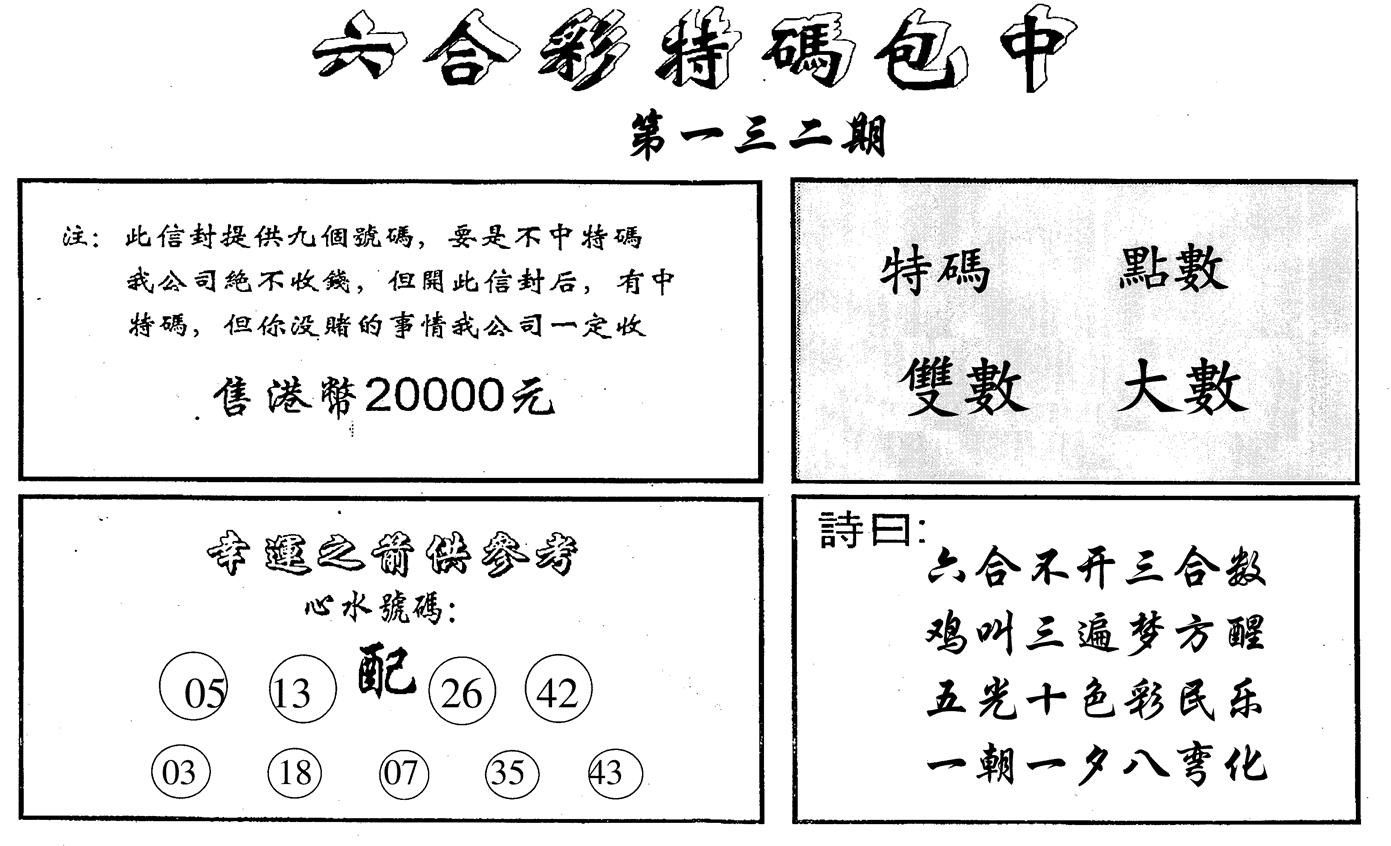 六合彩特碼包中
第一三二期
注：此信封提供九個號碼，要是不中特碼
我公司絶不收錢，但開此信封后，有中
特碼，但你没賭的事情我公司一定收
售港幣20000元
特碼 點數
雙數 大數
幸運之箭供參考
心水號碼：
05 13 配 26 42
03 18 07 35 43
詩曰：
六合不开三合数
鸡叫三遍梦方醒
五光十色彩民乐
一朝一夕八弯化